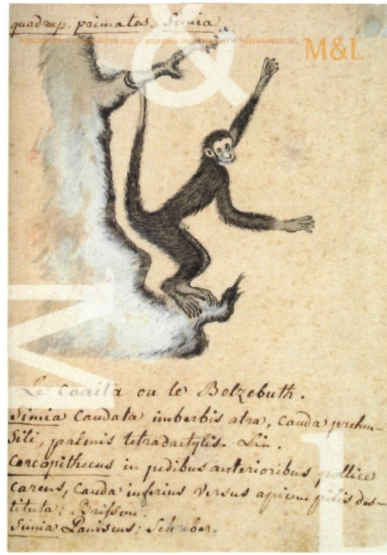 quadrup. primates. Simia
M&L
Le Coaita ou le Belzebuth.
Simia Caudata imberbis atra, Cauda prehen-
sili, palmis tetradactylis. Lin.
Cercopithecus in pedibus anterioribus pollice
carens, Cauda inferius versus apicem pilis des-
tituta; Brisson.
Simia Paniscus; Schreber.